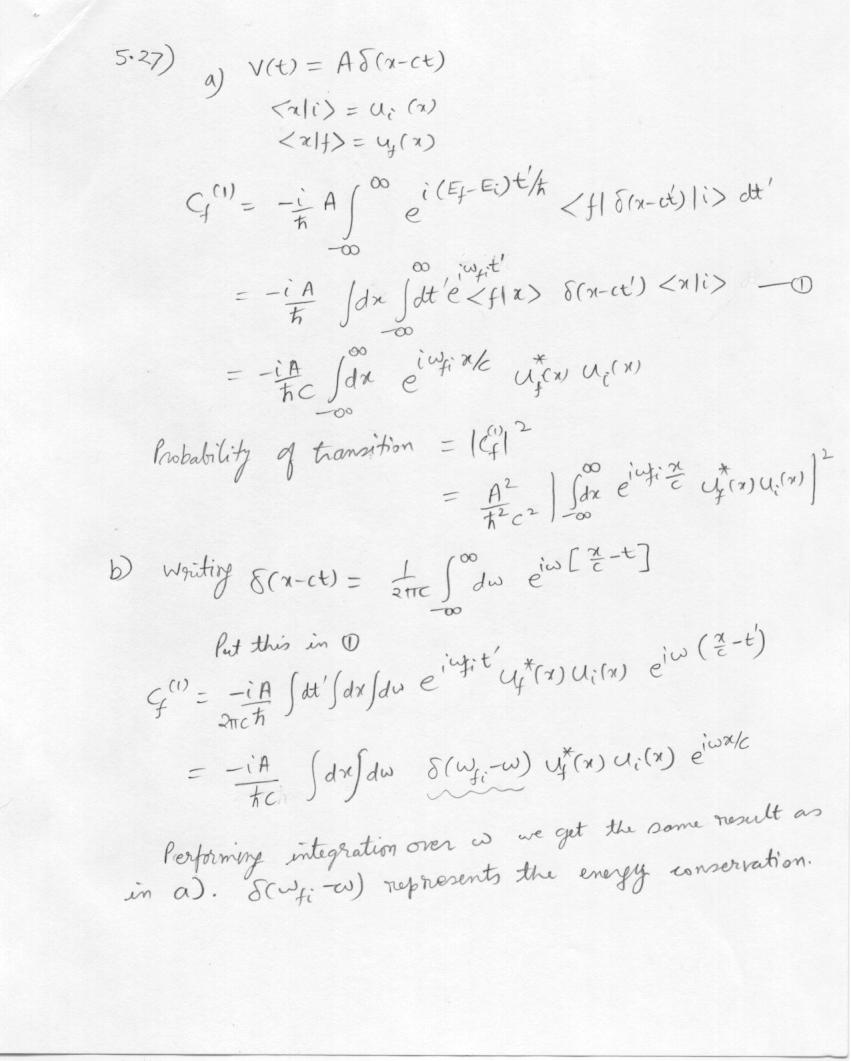 5.27)
a) V(t) = Aδ(x-ct)
<x|i> = u_i (x)
<x|f> = u_f(x)
C_f^(1) = -i/ħ A ∫_{-∞}^{∞} e^{i(E_f-E_i)t'/ħ} <f| δ(x-ct') |i> dt'
= -iA/ħ ∫dx ∫_{-∞}^{∞} dt' e^{iω_fi t'} <f|x> δ(x-ct') <x|i> —①
= -iA/ħc ∫_{-∞}^{∞} dx e^{iω_fi x/c} u_f^*(x) u_i(x)
Probability of transition = |C_f^(1)|^2
= A^2/ħ^2c^2 | ∫_{-∞}^{∞} dx e^{iω_fi x/c} u_f^*(x) u_i(x) |^2
b) Writing δ(x-ct) = 1/2πc ∫_{-∞}^{∞} dω e^{iω[x/c - t]}
Put this in ①
C_f^(1) = -iA/2πcħ ∫dt' ∫dx ∫dω e^{iω_fi t'} u_f^*(x) u_i(x) e^{iω(x/c - t')}
= -iA/ħc ∫dx ∫dω δ(ω_fi-ω) u_f^*(x) u_i(x) e^{iωx/c}
Performing integration over ω we get the same result as
in a). δ(ω_fi-ω) represents the energy conservation.